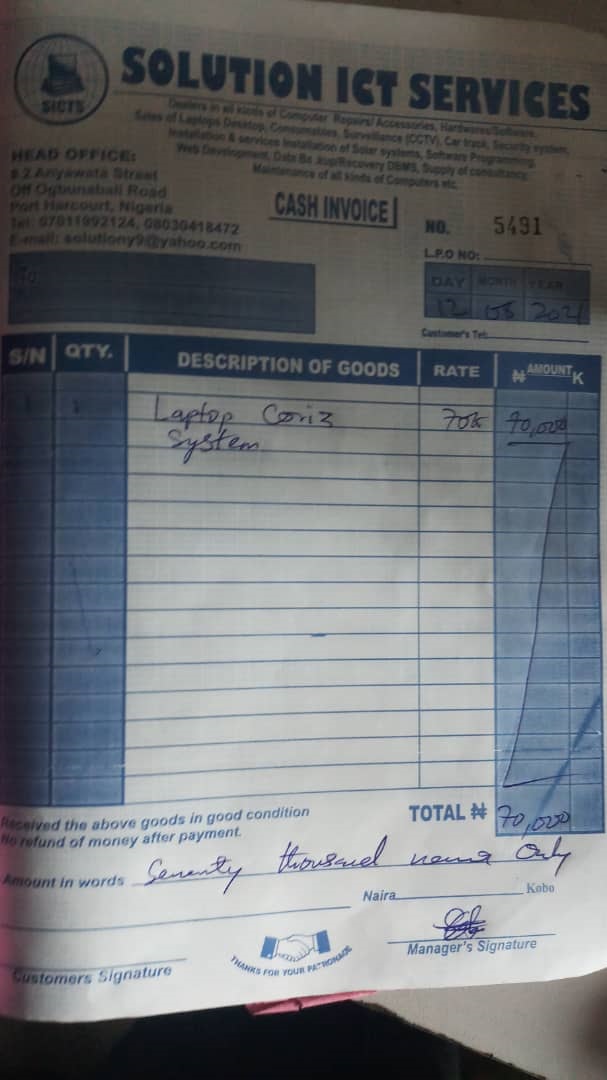 SICTS
SOLUTION ICT SERVICES
Dealers in all kinds of Computer Repairs/Accessories, Hardwares/Software,
Sales of Laptops Desktop, Consumables, Surveillance (CCTV), Car track, Security system,
Installation & services Installation of Solar systems, Software Programming,
Web Development, Data Ba /Recovery DBMS, Supply of consultancy
Maintenance of all kinds of Computers etc.
HEAD OFFICE:
# 2 Anyawata Street
Off Ogbunabali Road
Port Harcourt, Nigeria
Tel: 07011992124, 08030418472
E-mail: solutiony9@yahoo.com
CASH INVOICE
NO. 5491
L.P.O NO:
To
DAY MONTH YEAR
12 05 2021
Customer's Tel:
S/N QTY. DESCRIPTION OF GOODS RATE ₦ AMOUNT K
1 1 Laptop Cori3 70k 70,000
System
Received the above goods in good condition
No refund of money after payment.
TOTAL ₦ 70,000
Amount in words Seventy thousand Only
Naira Kobo
Manager's Signature
THANKS FOR YOUR PATRONAGE
Customers Signature